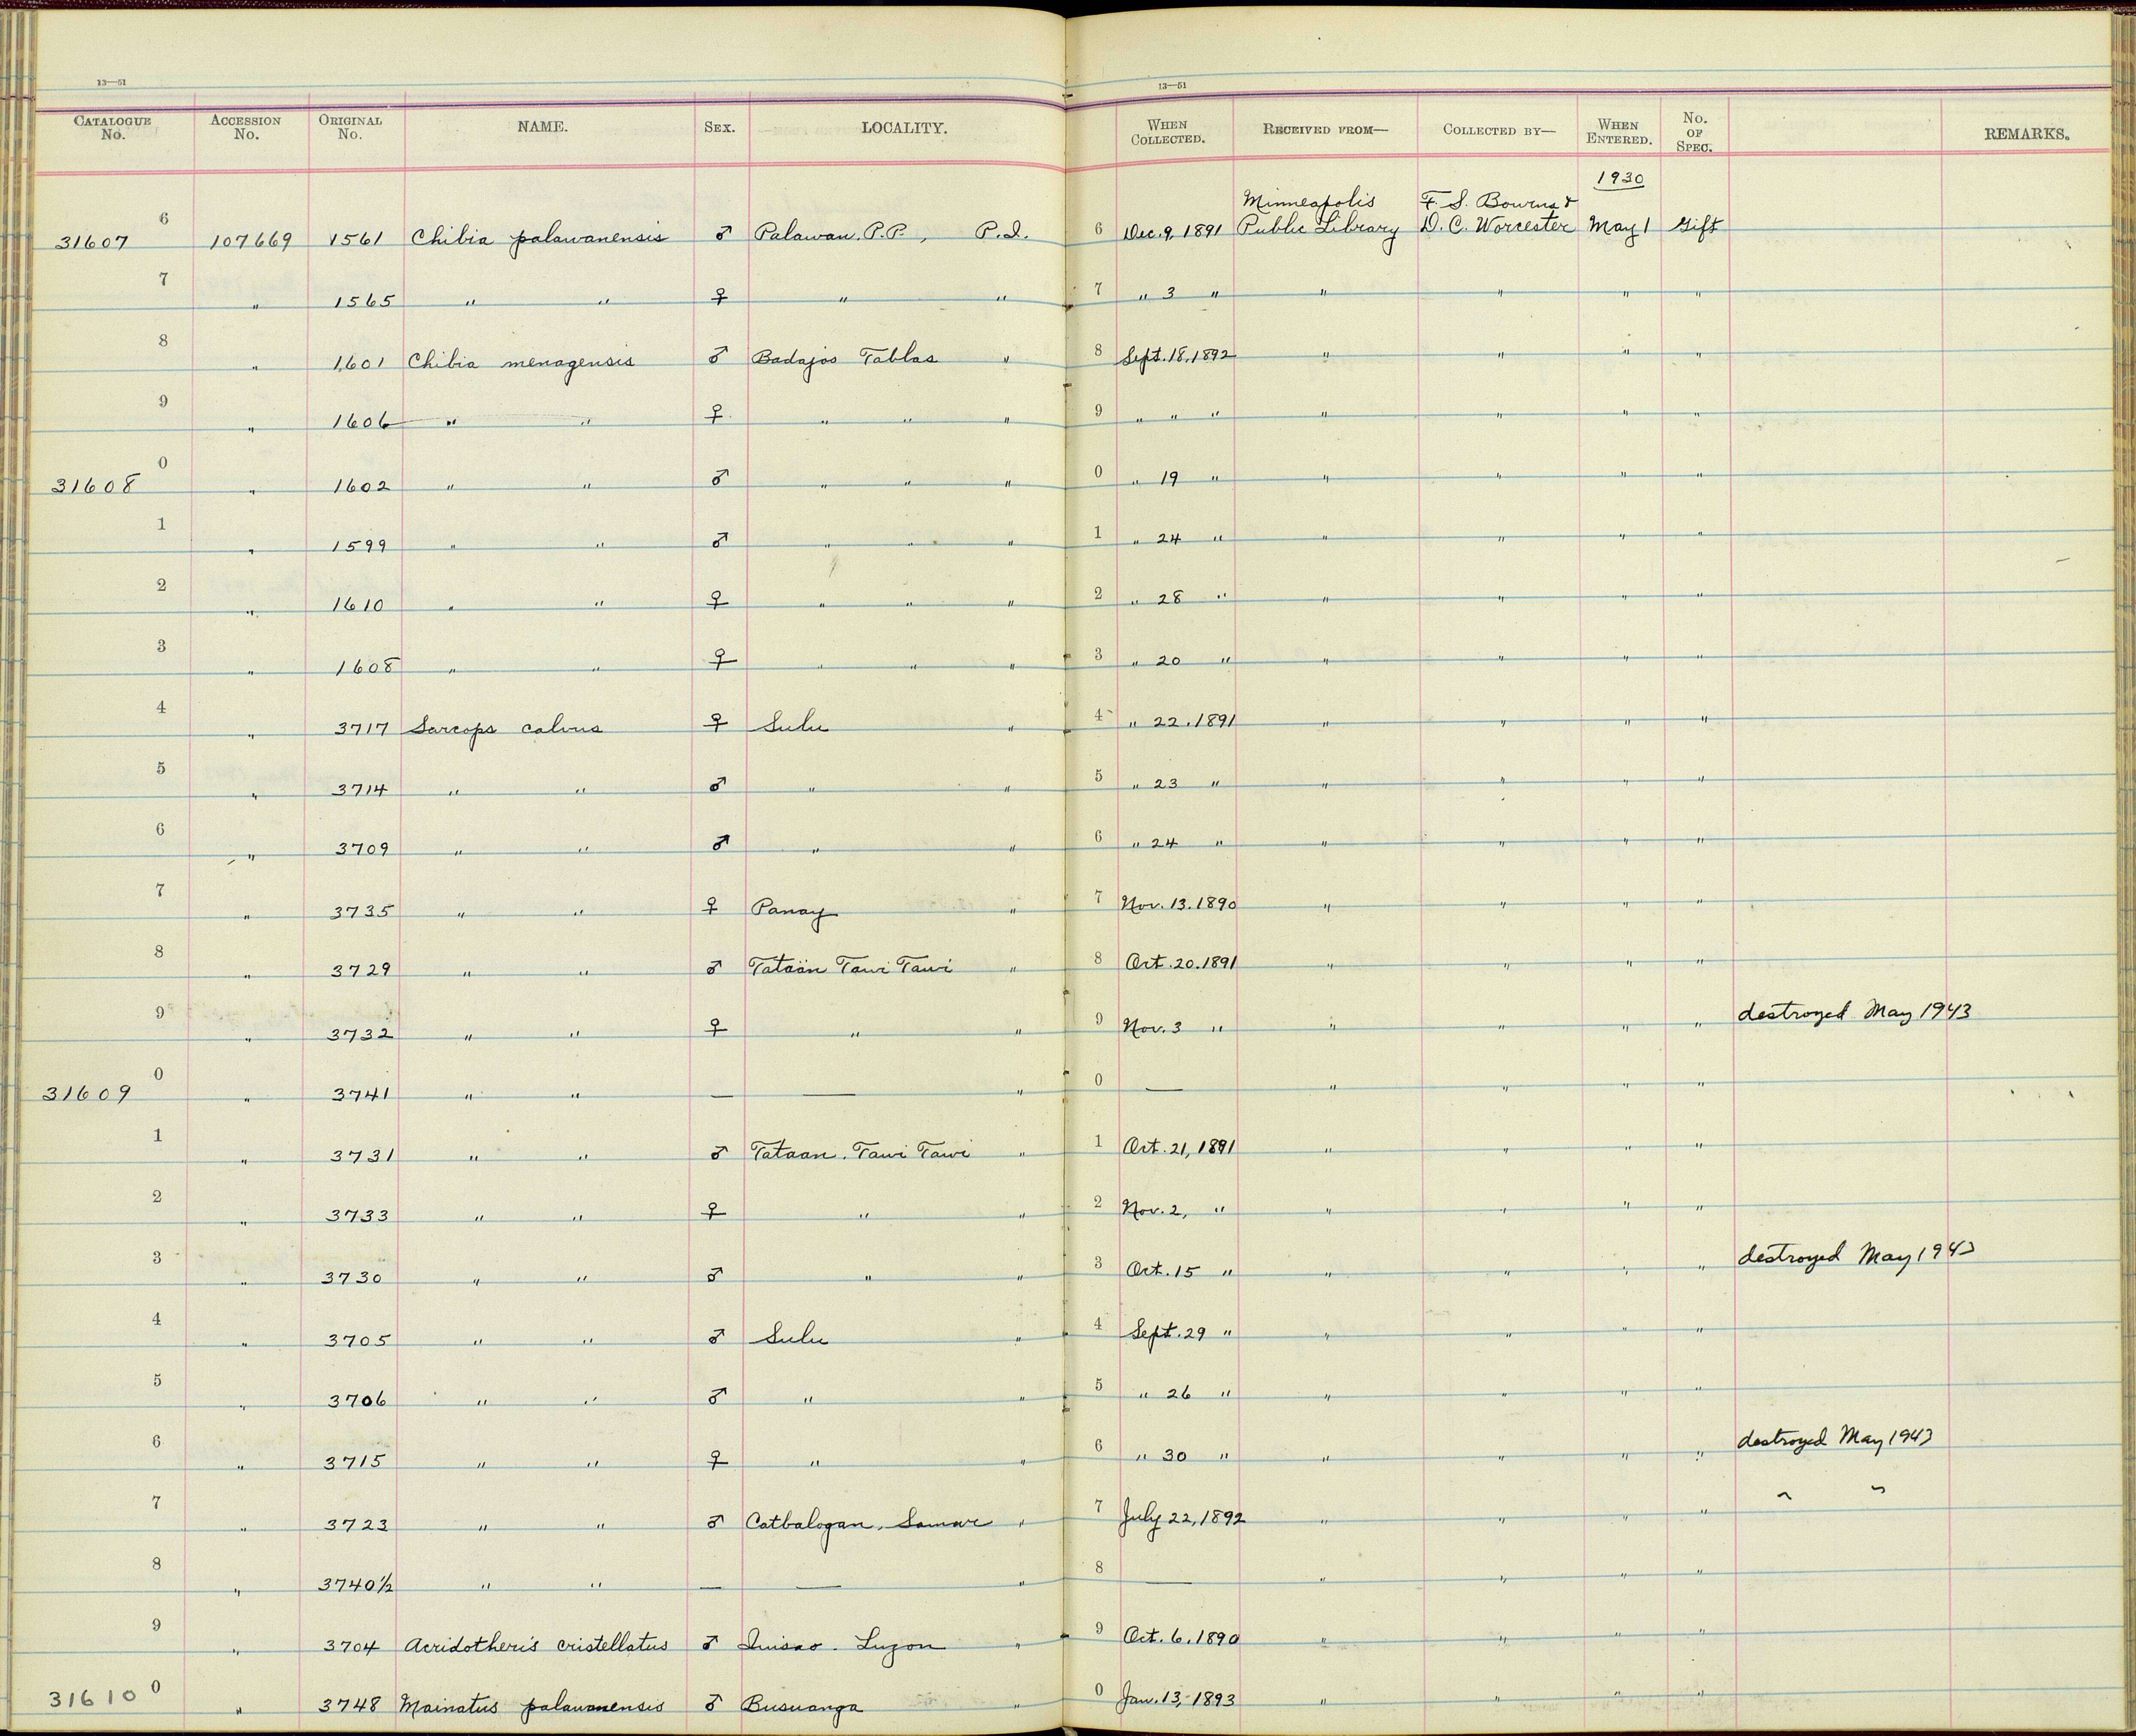 13—51 13—51
CATALOGUE No. ACCESSION No. ORIGINAL No. NAME. SEX. LOCALITY. WHEN COLLECTED. RECEIVED FROM— COLLECTED BY— WHEN ENTERED. No. OF SPEC. REMARKS.
1930
Minneapolis F. S. Bourns &
31607 6 107669 1561 Chibia palawanensis ♂ Palawan. P.P., P.I. 6 Dec. 9, 1891 Public Library D. C. Worcester May 1 Gift
7 " 1565 " " ♀ " " 7 " 3 " " " " "
8 " 1601 Chibia menagensis ♂ Badajos Tablas " 8 Sept. 18, 1892 " " " "
9 " 1606 " " ♀ " " " 9 " " " " " " "
31608 0 " 1602 " " ♂ " " " 0 " 19 " " " " "
1 " 1599 " " ♂ " " " 1 " 24 " " " " "
2 " 1610 " " ♀ " " " 2 " 28 " " " " "
3 " 1608 " " ♀ " " " 3 " 20 " " " " "
4 " 3717 Sarcops calvus ♀ Sulu " 4 " 22. 1891 " " " "
5 " 3714 " " ♂ " " 5 " 23 " " " " "
6 " 3709 " " ♂ " " 6 " 24 " " " " "
7 " 3735 " " ♀ Panay " 7 Nov. 13. 1890 " " " "
8 " 3729 " " ♂ Tataän Tawi Tawi " 8 Oct. 20. 1891 " " " "
9 " 3732 " " ♀ " " 9 Nov. 3 " " " " " destroyed May 1943
31609 0 " 3741 " " — — " 0 — " " " "
1 " 3731 " " ♂ Tataan. Tawi Tawi " 1 Oct. 21, 1891 " " " "
2 " 3733 " " ♀ " " 2 Nov. 2, " " " " "
3 " 3730 " " ♂ " " 3 Oct. 15 " " " " " destroyed May 1943
4 " 3705 " " ♂ Sulu " 4 Sept. 29 " " " " "
5 " 3706 " " ♂ " " 5 " 26 " " " " "
6 " 3715 " " ♀ " " 6 " 30 " " " " " destroyed May 1943
7 " 3723 " " ♂ Catbalogan, Samar " 7 July 22, 1892 " " " " " "
8 " 3740½ " " — — " 8 — " " " "
9 " 3704 Acridotheris cristellatus ♂ Luzon " 9 Oct. 6. 1890 " " " "
31610 0 " 3748 Mainatus palawanensis ♂ Busuanga " 0 Jan. 13, 1893 " " " "